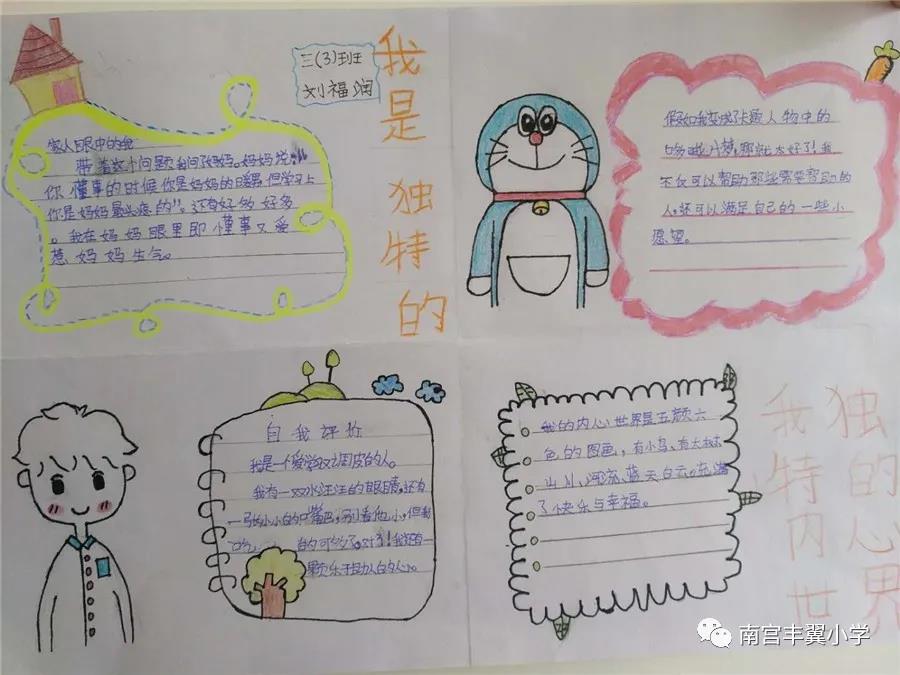 三(3)班
刘福润
我是独特的
家人眼中的我
带着这个问题我问了妈妈。妈妈说:“
你懂事的时候你是妈妈的暖男,但学习上
你是妈妈最头疼的”。还有好多好多
。我在妈妈眼里即懂事又爱
惹妈妈生气。
假如我变成了卡通人物中的
哆啦A梦,那就太好了!我
不仅可以帮助那些需要帮助的
人,还可以满足自己的一些小
愿望。
自我评价
我是一个爱学习又调皮的人。
我有一双水汪汪的眼睛,还有
一张小小的嘴巴,别看他小,但我
吃 的可多了,对了!我还有一
颗乐于助人的心。
我的内心世界是五颜六
色的图画,有小鸟、有大树
山川、河流、蓝天白云。充满
了快乐与幸福。
我独
特的
内心
世界
南宫丰翼小学